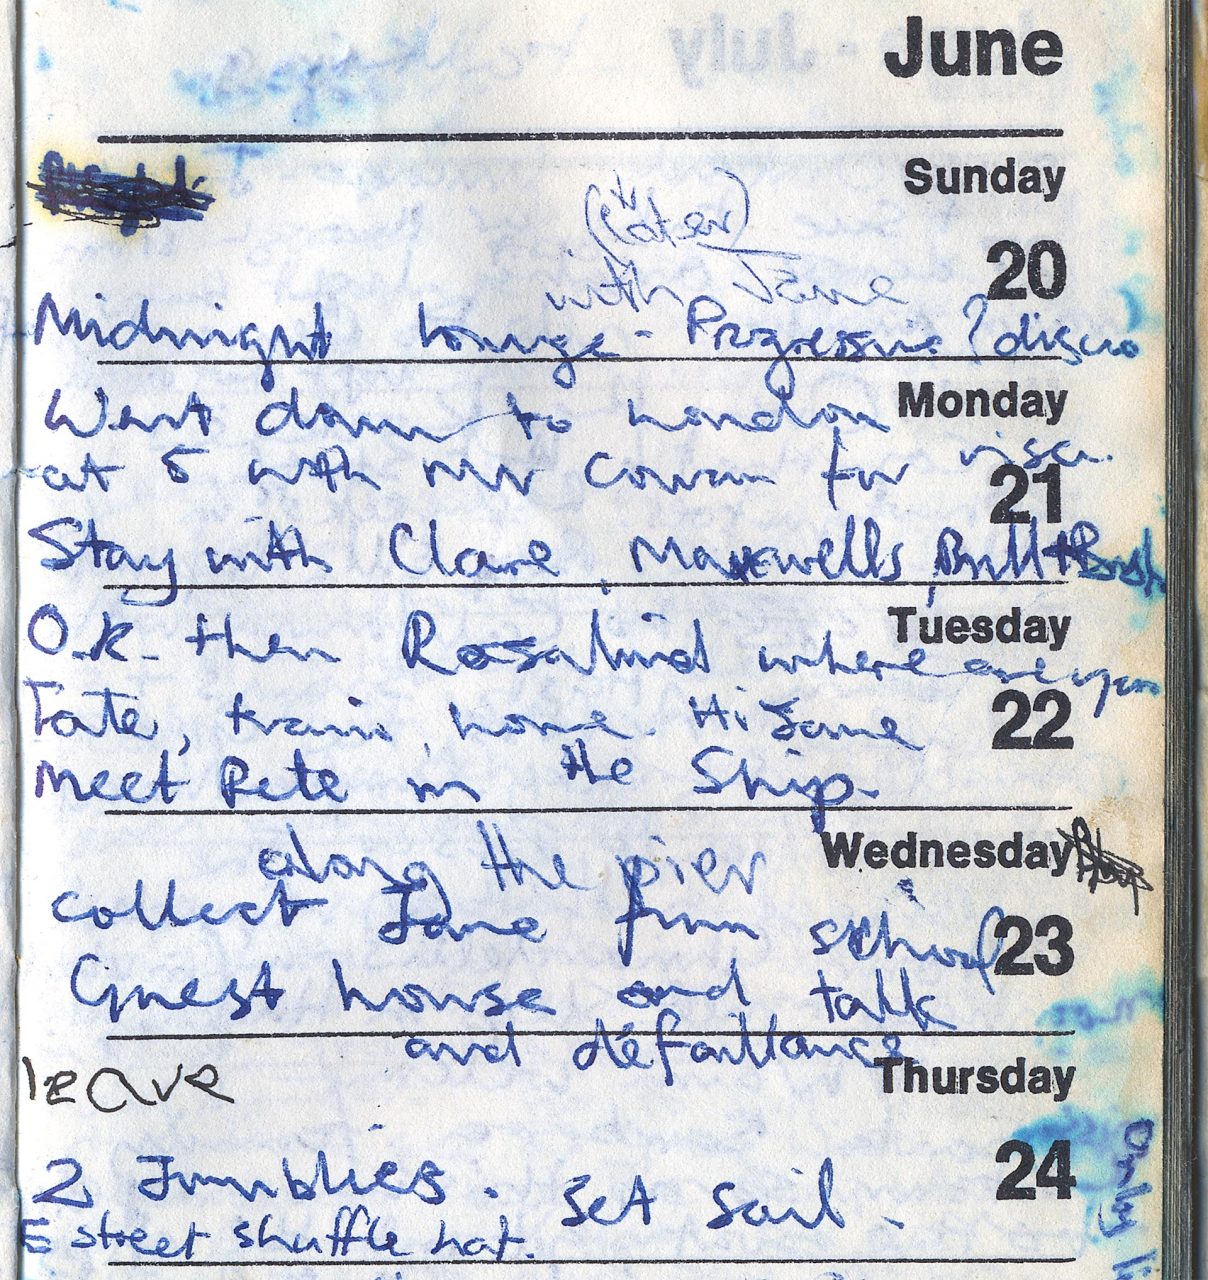 June
Sunday
20
(later)
with Jane
Midnight lounge - Progressive ? disco
Went down to London
Monday
at 5 with Mr Cowan for visa.
21
Stay with Clare, Maxwells, Bull + Bush
Tuesday
O.K. then Rosalind where are you
Tate, train, home. Hi Jane
22
Meet Pete in the Ship.
Wednesday
along the pier
collect Jane from school
23
Guest house and talk
and défaillance
Thursday
leave
24
2 Jumblies. Set sail.
E street shuffle hat.
only